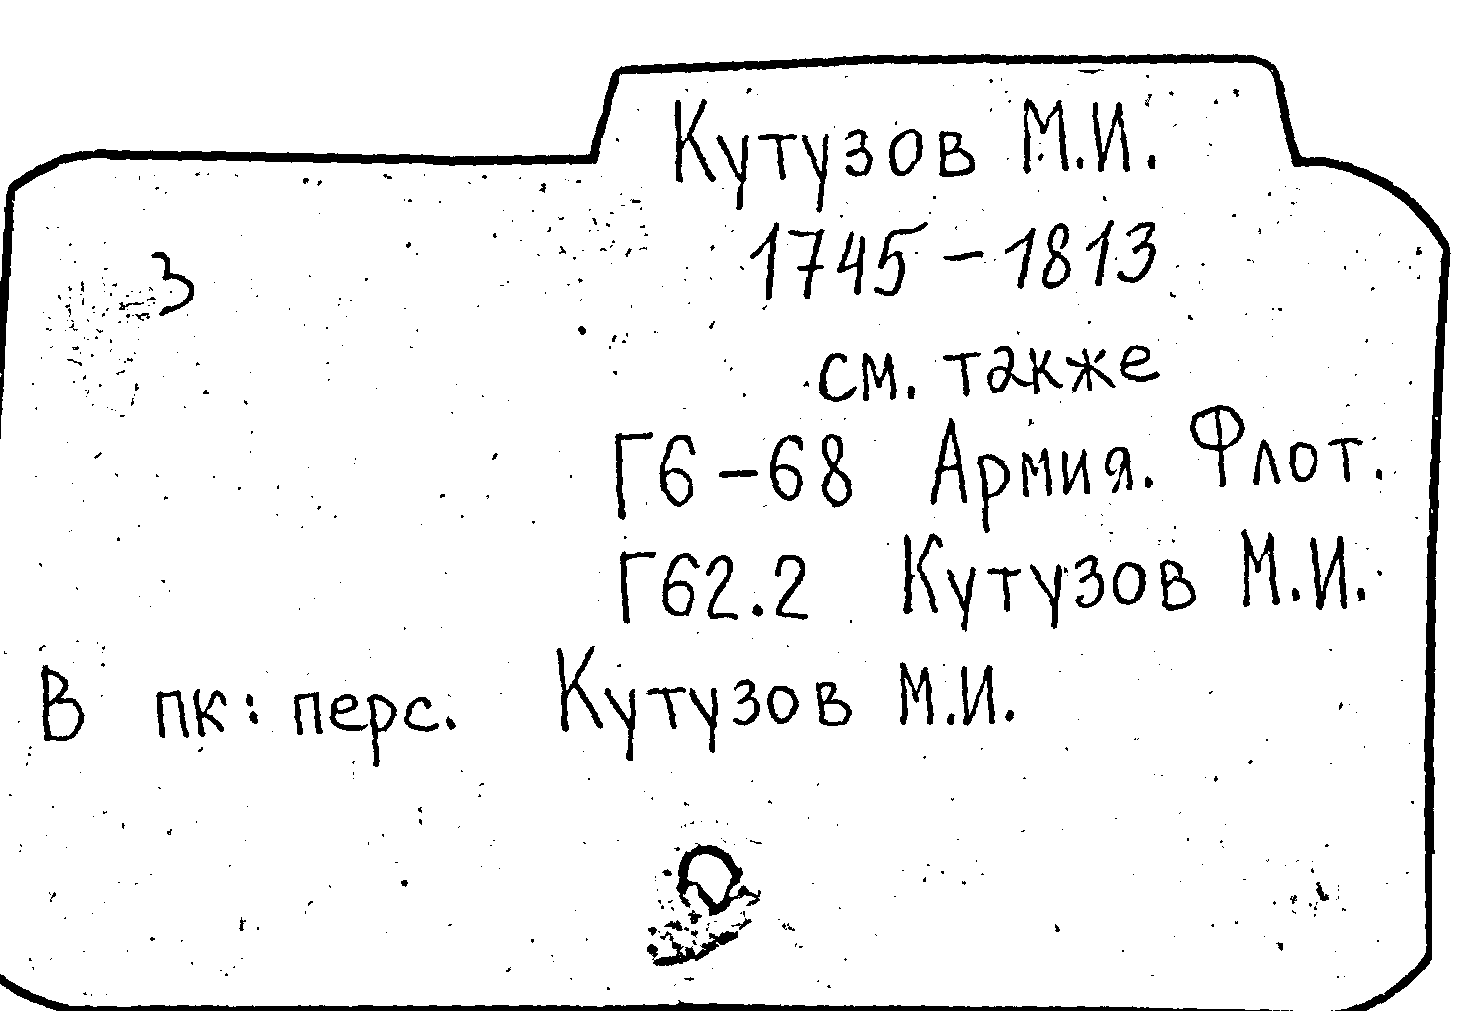 Кутузов М.И.
1745 – 1813
3
см. также
Г6 – 68 Армия. Флот.
Г62.2 Кутузов М.И.
В пк: перс. Кутузов М.И.